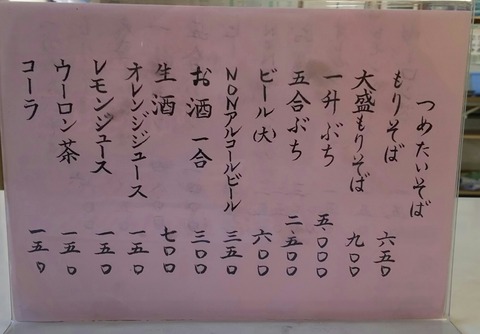 つめたいそば
もりそば 六五〇
大盛もりそば 九〇〇
一升ぶち 五、〇〇〇
五合ぶち 二、五〇〇
ビール(大) 六〇〇
NONアルコールビール 三五〇
お酒 一合 三〇〇
生酒 七〇〇
オレンジジュース 一五〇
レモンジュース 一五〇
ウーロン茶 一五〇
コーラ 一五〇